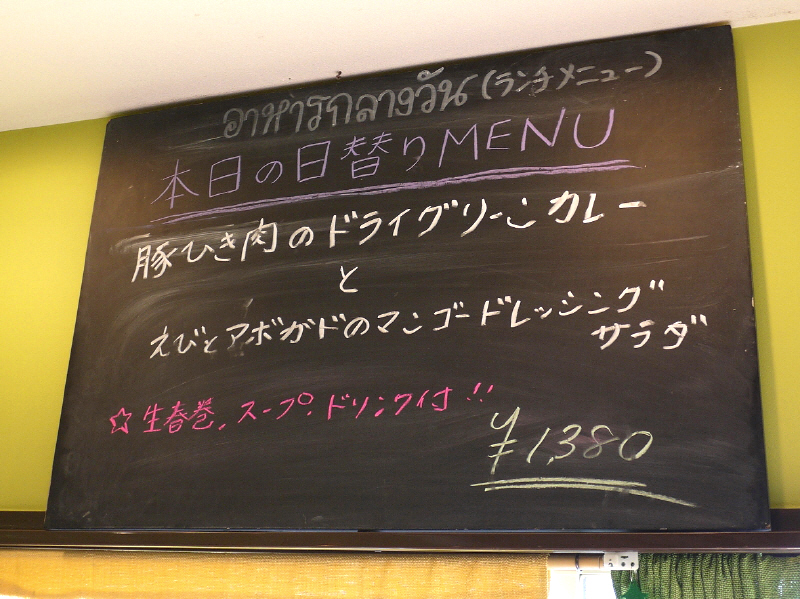 อาหารกลางวัน (ランチメニュー)
本日の日替りMENU
豚ひき肉のドライグリーンカレー
と
えびとアボガドのマンゴードレッシング
サラダ
☆生春巻、スープ、ドリンク付!!
¥1,380